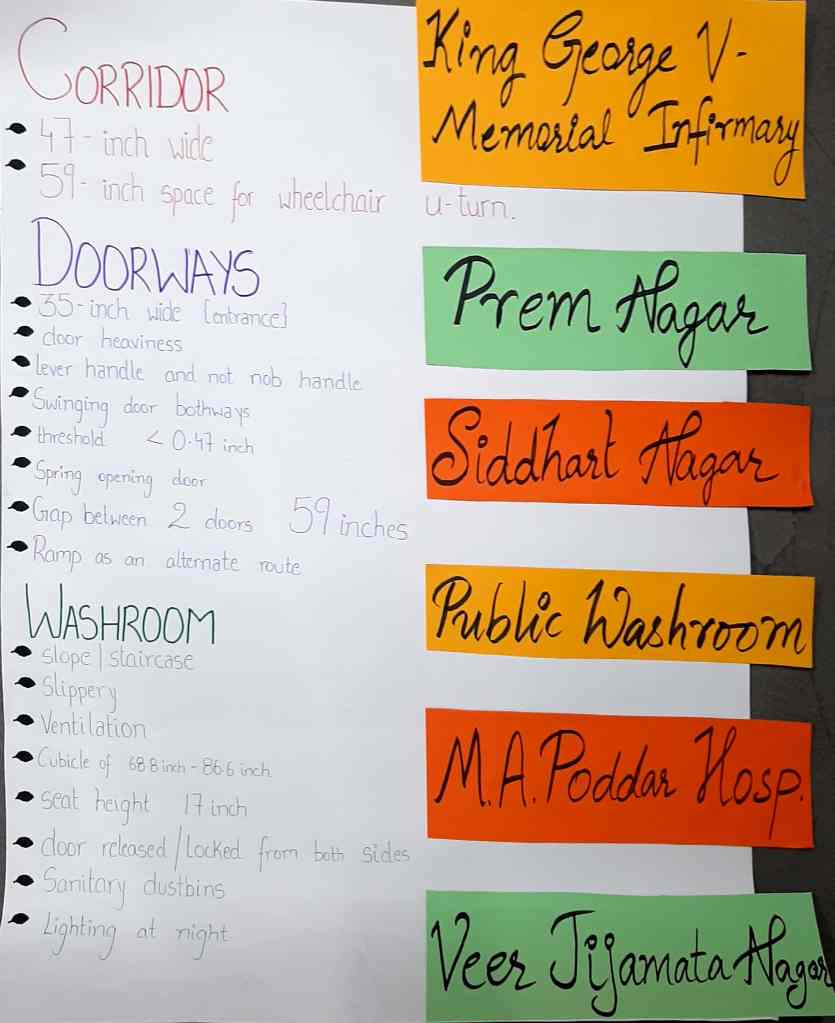 CORRIDOR
47-inch wide
59-inch space for wheelchair u-turn.
DOORWAYS
35-inch wide [entrance]
door heaviness
lever handle and not nob handle
Swinging door bothways
threshold < 0.47 inch
Spring opening door
Gap between 2 doors 59 inches
Ramp as an alternate route
WASHROOM
Slope/staircase
Slippery
Ventilation
Cubicle of 68.8 inch - 86.6 inch
Seat height 17 inch
door released/Locked from both sides
Sanitary dustbins
Lighting at night
King George V-
Memorial Infirmary
Prem Nagar
Siddhart Nagar
Public Washroom
M.A.Poddar Hosp.
Veer Jijamata Nagar